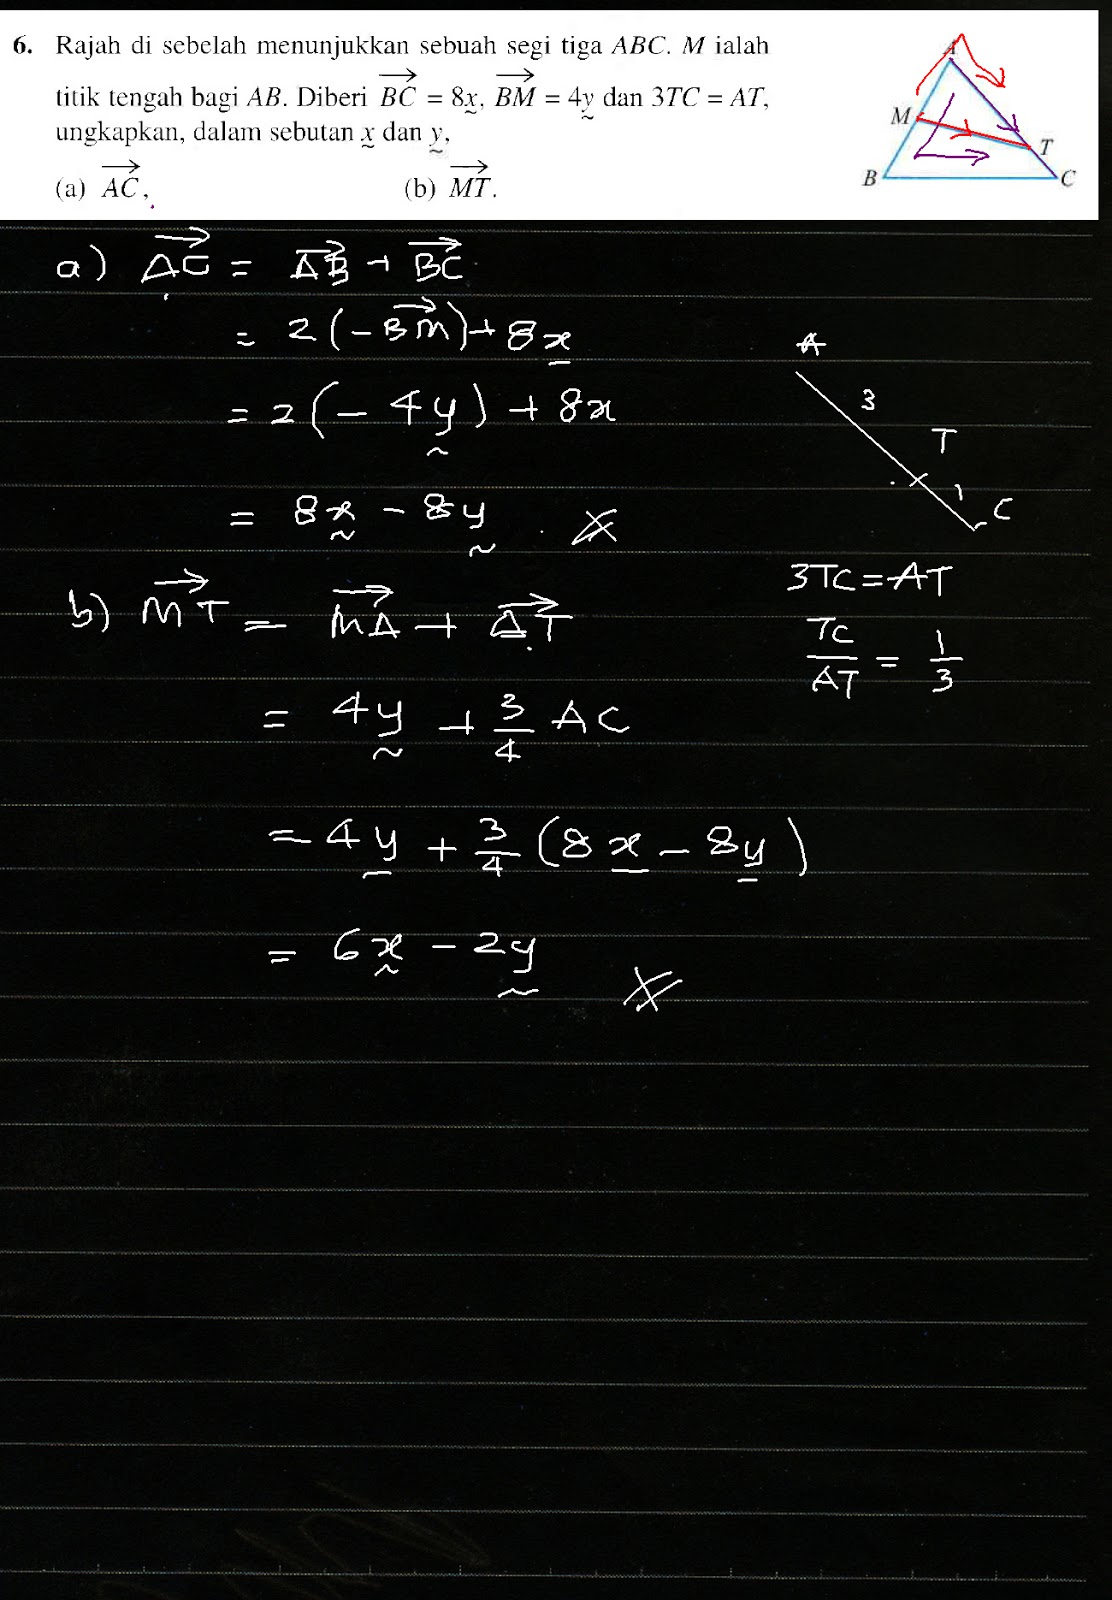 6. Rajah di sebelah menunjukkan sebuah segi tiga ABC. M ialah
titik tengah bagi AB. Diberi BC = 8x, BM = 4y dan 3TC = AT,
ungkapkan, dalam sebutan x dan y,
(a) AC, (b) MT.
A
M
T
B
C
a) AC = AB + BC
= 2(-BM) + 8x
= 2(-4y) + 8x
= 8x - 8y
A
3
T
1
C
3TC = AT
TC/AT = 1/3
b) MT = MA + AT
= 4y + 3/4 AC
= 4y + 3/4 (8x - 8y)
= 6x - 2y